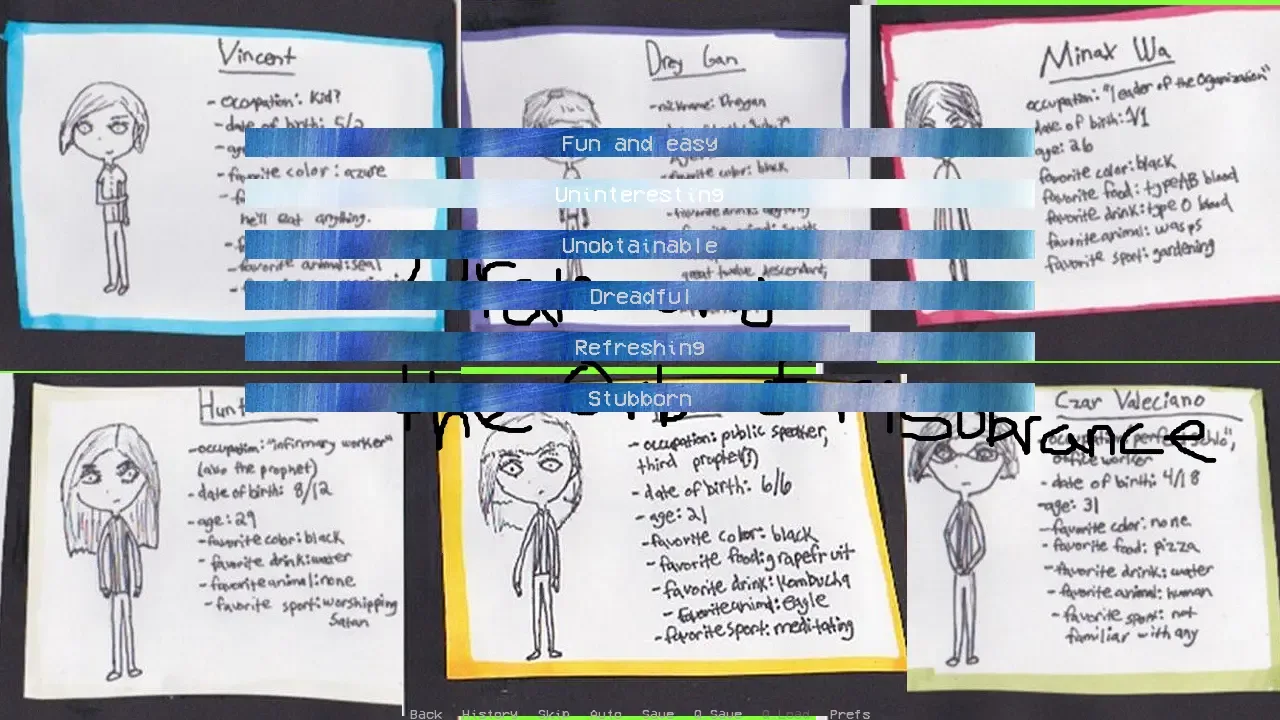 Vincent
- occupation: Kid?
- date of birth: 5/2
- favorite color: azure
he'll eat anything.
- favorite animal: seal
Drey Gan
- nickname: Dreygan
- favorite color: black
- favorite drink: anything
great twelve descendant,
Minax Wa
occupation: "leader of the Organization"
date of birth: 1/1
age: 26
favorite color: black
favorite food: type AB blood
favorite drink: type O blood
favorite animal: wasps
favorite sport: gardening
Fun and easy
Uninteresting
Unobtainable
Dreadful
Refreshing
Stubborn
the
Hunt
- occupation: "infirmary worker"
(aka the prophet)
- date of birth: 8/12
- age: 29
- favorite color: black
- favorite drink: water
- favorite animal: none
- favorite sport: worshipping
Satan
- occupation: public speaker,
third prophet(?)
- date of birth: 6/6
- age: 21
- favorite color: black
- favorite food: grapefruit
- favorite drink: Kombucha
- favorite animal: Eagle
- favorite sport: meditating
Czar Valeciano
office worker
- date of birth: 4/18
- age: 31
- favorite color: none
- favorite food: pizza
- favorite drink: water
- favorite animal: human
- favorite sport: not
familiar with any
Back History Skip Auto Save Q.Save Q.Load Prefs